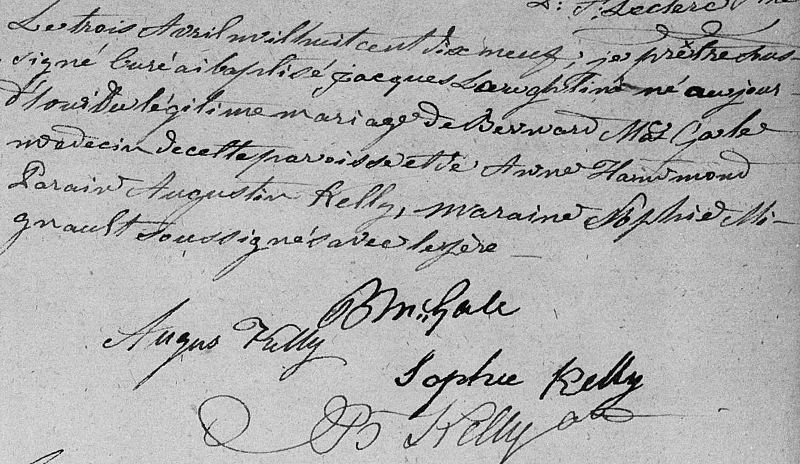 Leclerc
Le trois Avril mil huit cent dix neuf, je prêtre sous-
signé Curé ai baptisé Jacques Laughlin né aujour-
d'hui du légitime mariage de Bernard McGale
médecin de cette paroisse et de Anne Hammond
Parain Augustin Kelly, maraine Sophie Mi-
gnault soussignés avec le père
B McGale
Augus Kelly
Sophie Kelly
Kelly